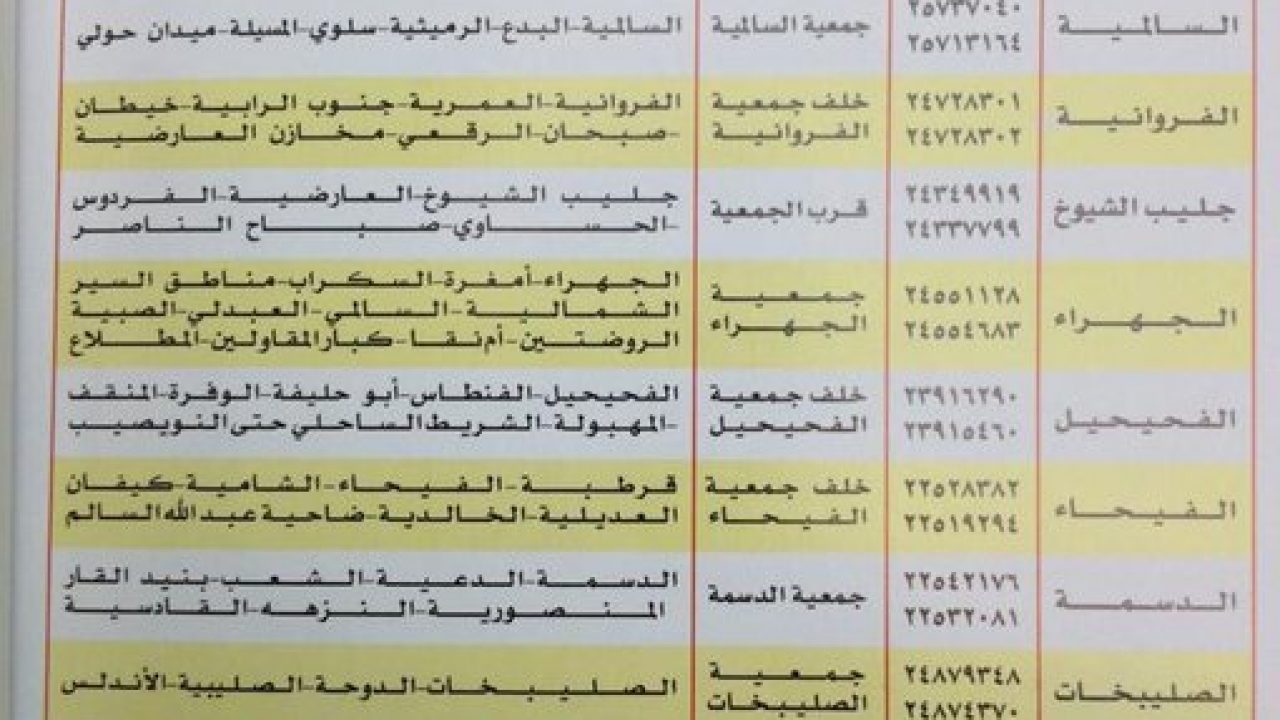 السالمية
٢٥٧٣٧٠٤٠
٢٥٧١٣١٦٤
جمعية السالمية
السالمية-البدع-الرميثية-سلوي-المسيلة-ميدان حولي
الفروانية
٢٤٧٢٨٣٠١
٢٤٧٢٨٣٠٢
خلف جمعية
الفروانية
الفروانية-العمرية-جنوب الرابية-خيطان
-صبحان-الرقعي-مخازن العارضية
جليب الشيوخ
٢٤٣٤٩٩١٩
٢٤٣٣٧٧٩٩
قرب الجمعية
جليب الشيوخ-العارضية-الفردوس
-الحساوي-صباح الناصر
الجهراء
٢٤٥٥١١٢٨
٢٤٥٥٤٦٨٣
جمعية
الجهراء
الجهراء-أمغرة-السكراب-مناطق السير
الشمالية-السالمي-العبدلي-الصبية
الروضتين-أم نقا-كبار المقاولين-المطلاع
الفحيحيل
٢٣٩١٦٢٩٠
٢٣٩١٥٤٦٠
خلف جمعية
الفحيحيل
الفحيحيل-الفنطاس-أبو حليفة-الوفرة-المنقف
-المهبولة-الشريط الساحلي حتى النويصيب
الفيحاء
٢٢٥٢٨٣٨٢
٢٢٥١٩٢٩٤
خلف جمعية
الفيحاء
قرطبة-الفيحاء-الشامية-كيفان
العديلية-الخالدية-ضاحية عبدالله السالم
الدسمة
٢٢٥٤٢١٧٦
٢٢٥٣٢٠٨١
جمعية الدسمة
الدسمة-الدعية-الشعب-بنيد القار
المنصورية-النزهه-القادسية
الصليبخات
٢٤٨٧٩٣٤٨
٢٤٨٧٤٣٧٠
جمعية
الصليبخات
الصليبخات-الدوحة-الصليبية-الأندلس